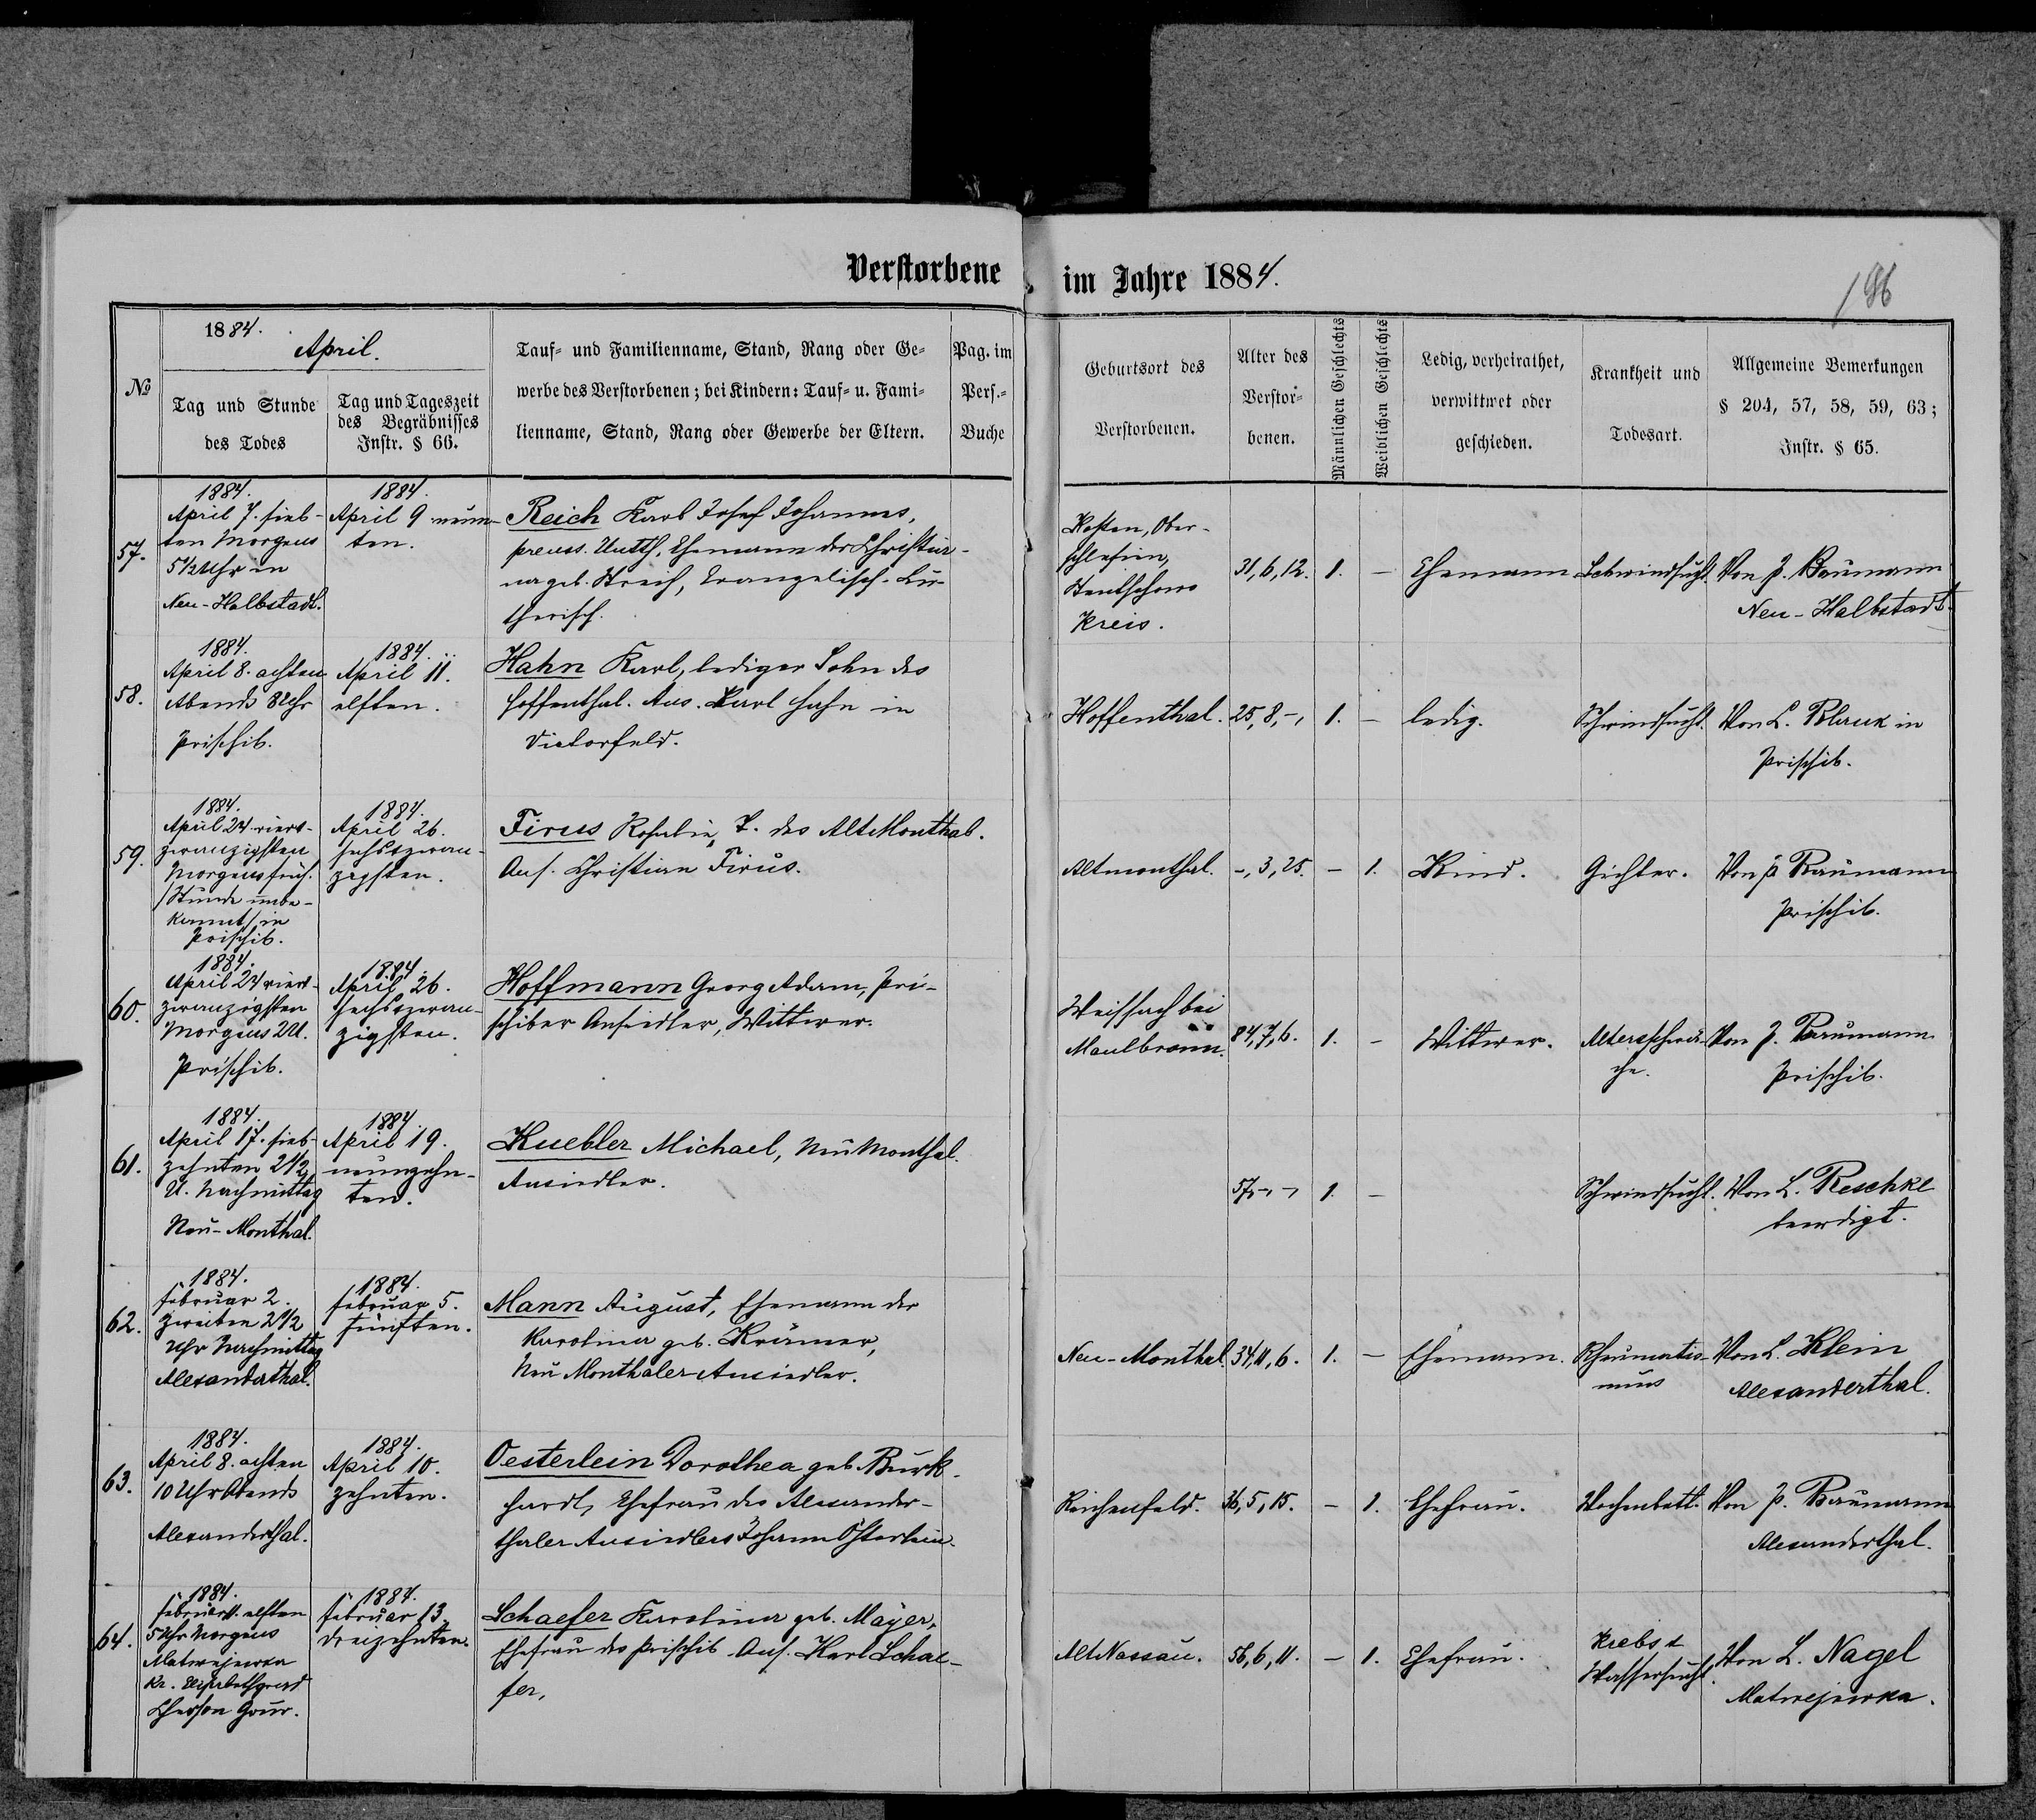 Verstorbene im Jahre 1884.
196
№
1884.
April.
Tag und Stunde
des Todes
Tag und Tageszeit
des Begräbnisses
Instr. § 66.
Tauf- und Familienname, Stand, Rang oder Ge-
werbe des Verstorbenen; bei Kindern: Tauf- u. Fami-
lienname, Stand, Rang oder Gewerbe der Eltern.
Pag. im
Pers.-
Buche
Geburtsort des
Verstorbenen.
Alter des
Verstor-
benen.
Männlichen Geschlechts
Weiblichen Geschlechts
Ledig, verheirathet,
verwittwet oder
geschieden.
Krankheit und
Todesart.
Allgemeine Bemerkungen
§ 204, 57, 58, 59, 63;
Instr. § 65.
57.
1884.
April 7. sieb-
ten Morgens
5½ Uhr in
Neu-Halbstadt.
1884.
April 9 neun-
ten.
Reich Karl Josef Johannes,
preuss. Untth, Ehemann der Christia-
na geb. Streich, Evangelisch-Lu-
therisch.
Ober-
schlesien,
Kreis.
31, 6, 12.
1.
-
Ehemann
Schwindsucht.
Von J. Baumann
Neu-Halbstadt.
58.
1884.
April 8. achten
Abends 8 Uhr
Prischib.
1884.
April 11.
elften.
Hahn Karl, lediger Sohn des
Hoffenthal. Ans. Karl Hahn in
Victorfeld.
Hoffenthal.
25, 8, -,
1.
-
ledig.
Schwindsucht.
Von L. in
Prischib.
59.
1884.
April 24. viers-
zwanzigsten
Morgens früh.
/Stunde unbe-
kannt/ in
Prischib.
1884.
April 26.
sechszwan-
zigsten.
Firus Rosalie, T. des AltMonthal.
Ans. Christian Firus.
Altmonthal.
-, 3, 25.
-
1.
Kind.
Gichter.
Von P. Baumann
Prischib.
60.
1884.
April 24 viers-
zwanzigsten
Morgens 2 U.
Prischib.
1884.
April 26.
sechszwan-
zigsten.
Hoffmann Georg Adam, Pri-
schiber Ansiedler, Wittwer.
Weissach bei
Maulbronn.
84, 7, 6.
1.
-
Wittwer.
Altersschwä-
che.
Von J. Baumann
Prischib.
61.
1884.
April 17. sieb-
zehnten 2½
U. Nachmittag
Neu-Monthal.
1884.
April 19.
neunzehn-
ten.
Kuebler Michael, Neu Monthal.
Ansiedler.
57, -, -,
1.
-
Schwindsucht.
Von L. Reschke
beerdigt.
62.
1884.
Februar 2.
zweiten 2½
Uhr Nachmittag
Alexanderthal.
1884.
Februar 5.
fünften.
Mann August, Ehemann der
Karolina geb. Krämer,
Neu Monthaler Ansiedler.
Neu-Monthal.
34, 11, 6.
1.
-
Ehemann.
Rheumatis-
mus
Von L. Klein
Alexanderthal.
63.
1884.
April 8. achten
10 Uhr Abends
Alexanderthal.
1884.
April 10.
zehnten.
Oesterlein Dorothea geb. Burk-
hardt, Ehefrau des Alexander-
thaler Ansiedlers Johann Österlein.
Reichenfeld.
36, 5, 15.
-
1.
Ehefrau.
Wochenbett.
Von P. Baumann
Alexanderthal.
64.
1884.
Februar 11. elften
5 Uhr Morgens
Matwejewka
Kr. Elisabethgrad
Cherson Gouv.
1884.
Februar 13.
dreizehnten.
Schaefer Karolina geb. Mayer,
Ehefrau des Prischib. Ans. Karl Schae-
fer.
Alt Nassau.
56, 6, 11.
-
1.
Ehefrau.
Krebs u
Wassersucht.
Von L. Nagel
Matwejewka.